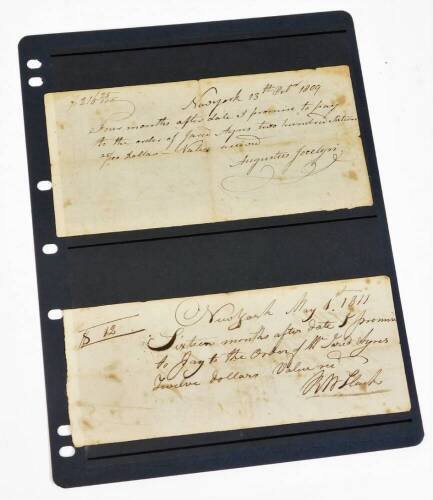 Newyork 13th Oct 1809
Four months after date I promise to pay
to the order of Jared Ayres two hundred sixteen
Dollars Value received
Augustus Jocelyn
New York May 1st 1811
$ 12
Sixteen months after date I promise
to Pay to the Order of Mr Jared Ayres
Twelve dollars Value